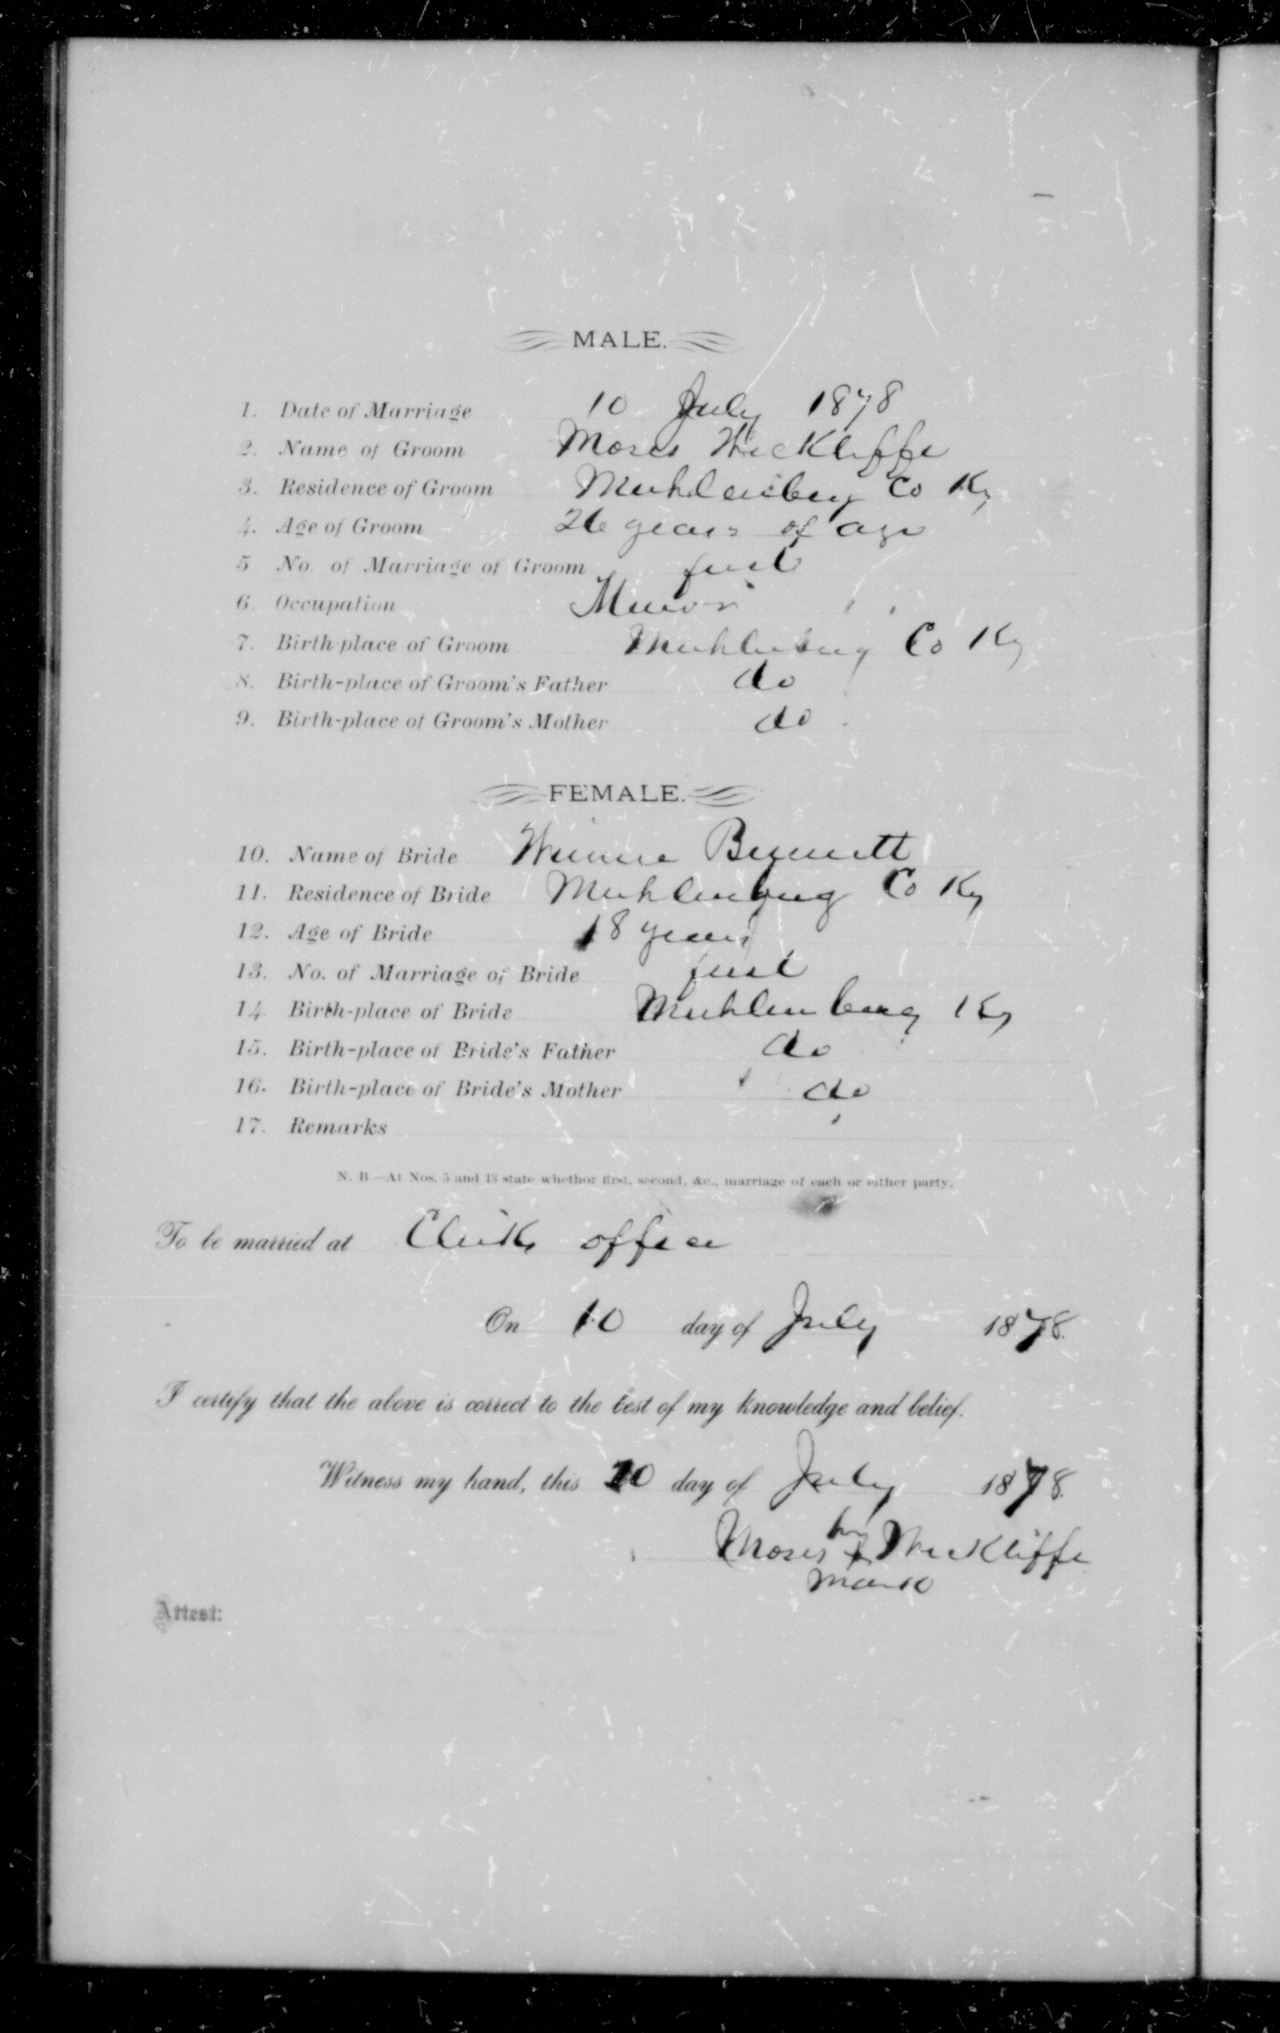 MALE.
1. Date of Marriage 10 July 1878
2. Name of Groom Moses Wickliffe
3. Residence of Groom Muhlenberg Co Ky
4. Age of Groom 26 years of age
5 No. of Marriage of Groom first
6. Occupation
7. Birth-place of Groom Muhlenberg Co Ky
8. Birth-place of Groom's Father do
9. Birth-place of Groom's Mother do
FEMALE.
10. Name of Bride Bennett
11. Residence of Bride Muhlenberg Co Ky
12. Age of Bride 18 years
13. No. of Marriage of Bride first
14 Birth-place of Bride Muhlenberg Ky
15. Birth-place of Bride's Father do
16. Birth-place of Bride's Mother do
17. Remarks
N. B—At Nos. 5 and 13 state whether first, second, &c., marriage of each or either party.
To be married at Clerks office
On 10 day of July 1878.
I certify that the above is correct to the best of my knowledge and belief.
Witness my hand, this 10 day of July 1878.
his
Moses x Wickliffe
mark
Attest: